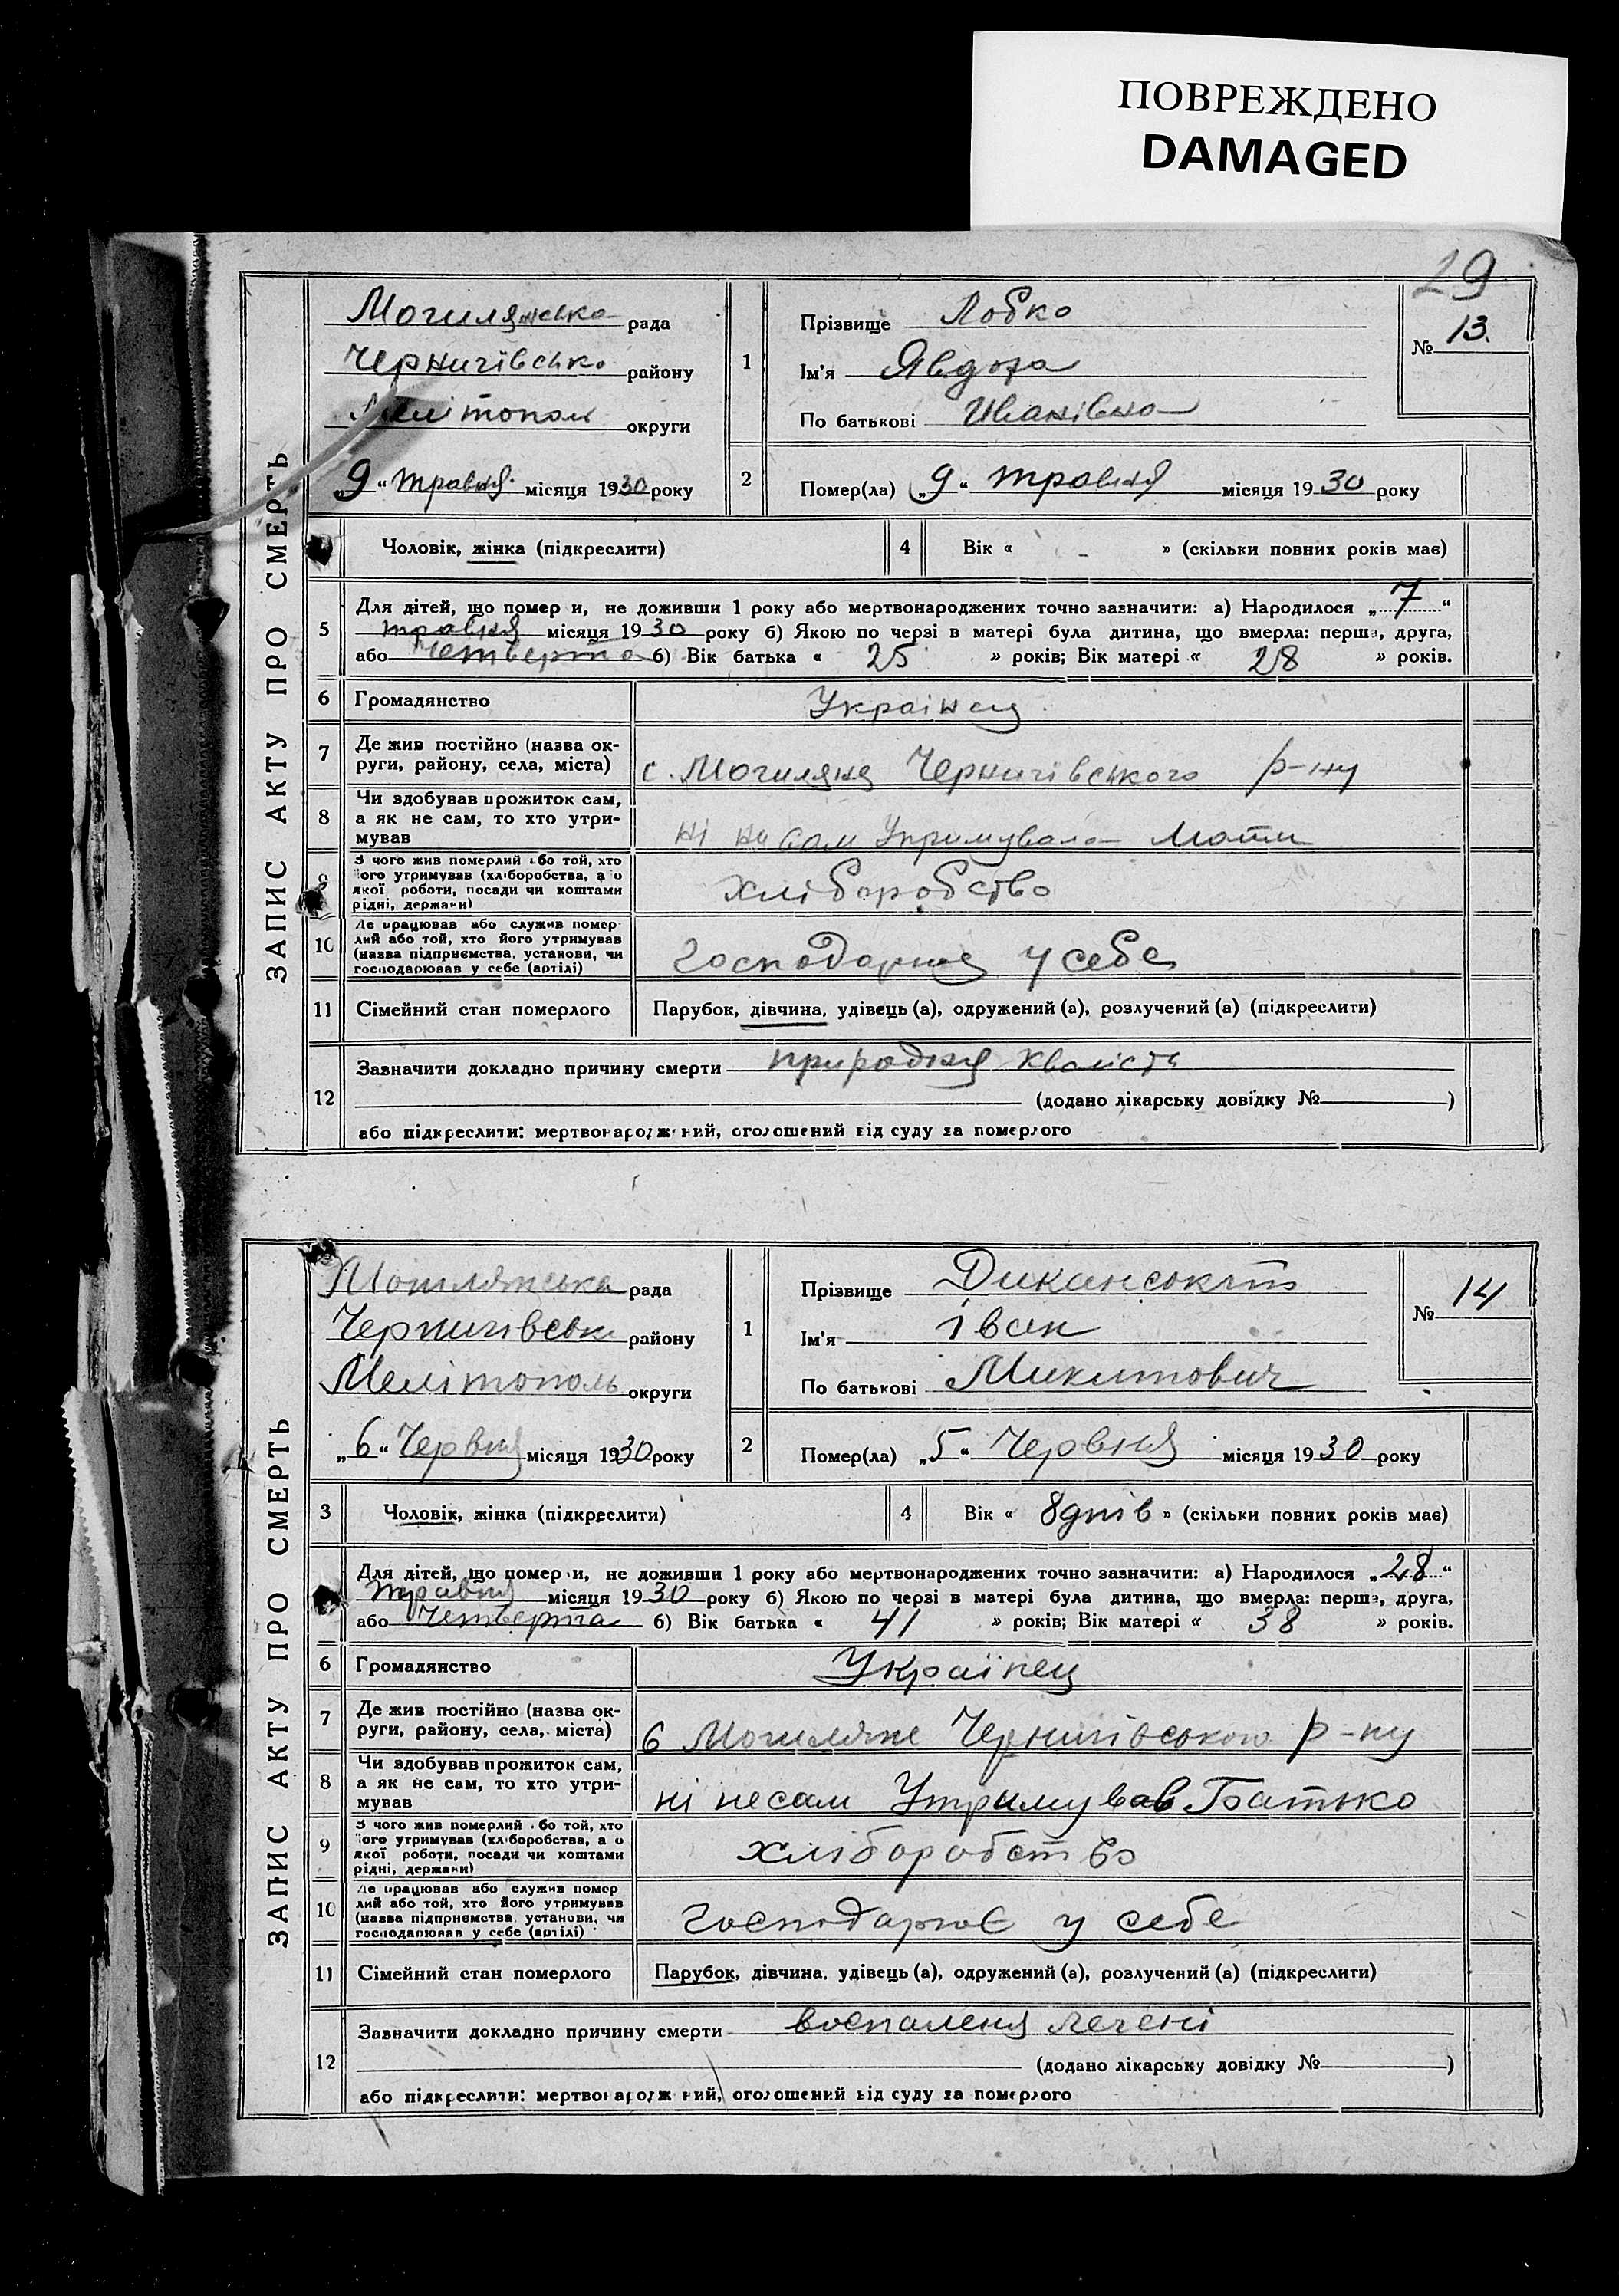 ПОВРЕЖДЕНО
DAMAGED
29
ЗАПИС АКТУ ПРО СМЕРТЬ
Могилянсько рада
Чернигівсько району
Мелітополь округи
„9“ травня місяця 1930 року
1
Прізвище Лобко
Ім'я Явдоха
По батькові Иванівно
№ 13.
2
Помер(ла) „9“ травня місяця 1930 року
Чоловік, жінка (підкреслити)
4
Вік « - » (скільки повних років має)
5
Для дітей, що помер и, не доживши 1 року або мертвонароджених точно зазначити: а) Народилося „7“
травня місяця 1930 року б) Якою по черзі в матері була дитина, що вмерла: перша, друга,
або четверта б) Вік батька « 25 » років; Вік матері « 28 » років.
6
Громадянство
7
Де жив постійно (назва ок-
руги, району, села, міста)
с. Могиляна Чернигівського р-ну
8
Чи здобував прожиток сам,
а як не сам, то хто утри-
мував
ні не сам Утримувала Мати
9
З чого жив померлий або той, хто
його утримував (хліборобства, а о
якої роботи, посади чи коштами
рідні, держави)
хліборобство
10
Де працював або служив помер
лий або той, хто його утримував
(назва підприємства, установи, чи
господарював у себе (артілі)
у себе
11
Сімейний стан померлого
Парубок, дівчина, удівець (а), одружений (а), розлучений (а) (підкреслити)
12
Зазначити докладно причину смерти природня кволість
(додано лікарську довідку № )
або підкреслити: мертвонароджений, оголошений від суду за померлого
ЗАПИС АКТУ ПРО СМЕРТЬ
Могилянська рада
Чернигівськ району
Мелітополь округи
„6“ Червня місяця 1930 року
1
Прізвище
Ім'я Іван
По батькові Микитович
№ 14
2
Помер(ла) „5“ Червня місяця 1930 року
3
Чоловік, жінка (підкреслити)
4
Вік « 8 днів » (скільки повних років має)
Для дітей, що помер и, не доживши 1 року або мертвонароджених точно зазначити: а) Народилося „28“
травня місяця 1930 року б) Якою по черзі в матері була дитина, що вмерла: перша, друга,
або Четверта б) Вік батька « 41 » років; Вік матері « 38 » років.
6
Громадянство
Українец
7
Де жив постійно (назва ок-
руги, району, села, міста)
с Могиляне Чернигівського р-ну
8
Чи здобував прожиток сам,
а як не сам, то хто утри-
мував
ні несам Утримував Батько
9
З чого жив померлий або той, хто
його утримував (хліборобства, а о
якої роботи, посади чи коштами
рідні, держави)
хліборобство
10
Де працював або служив помер
лий або той, хто його утримував
(назва підприємства, установи, чи
господарював у себе (артілі)
господарює у себе
11
Сімейний стан померлого
Парубок, дівчина, удівець (а), одружений (а), розлучений (а) (підкреслити)
12
Зазначити докладно причину смерти воспаленя легені
(додано лікарську довідку № )
або підкреслити: мертвонароджений, оголошений від суду за померлого